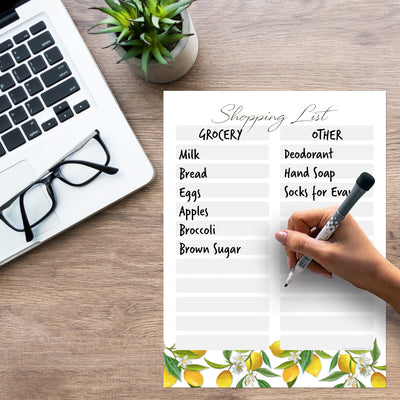 Shopping List
GROCERY
Milk
Bread
Eggs
Apples
Broccoli
Brown Sugar
OTHER
Deodorant
Hand Soap
Socks for Evan